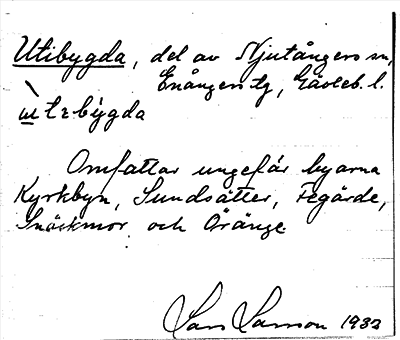 Utibygda, del av Njutångers sn,
Enångers tg, Gävleb. l.
ùtɛbýgda
Omfattar ungefär byarna
Kyrkbyn, Sundsätter, Fegärde,
Snäckmor och Öränge.
Lars Larsson 1932